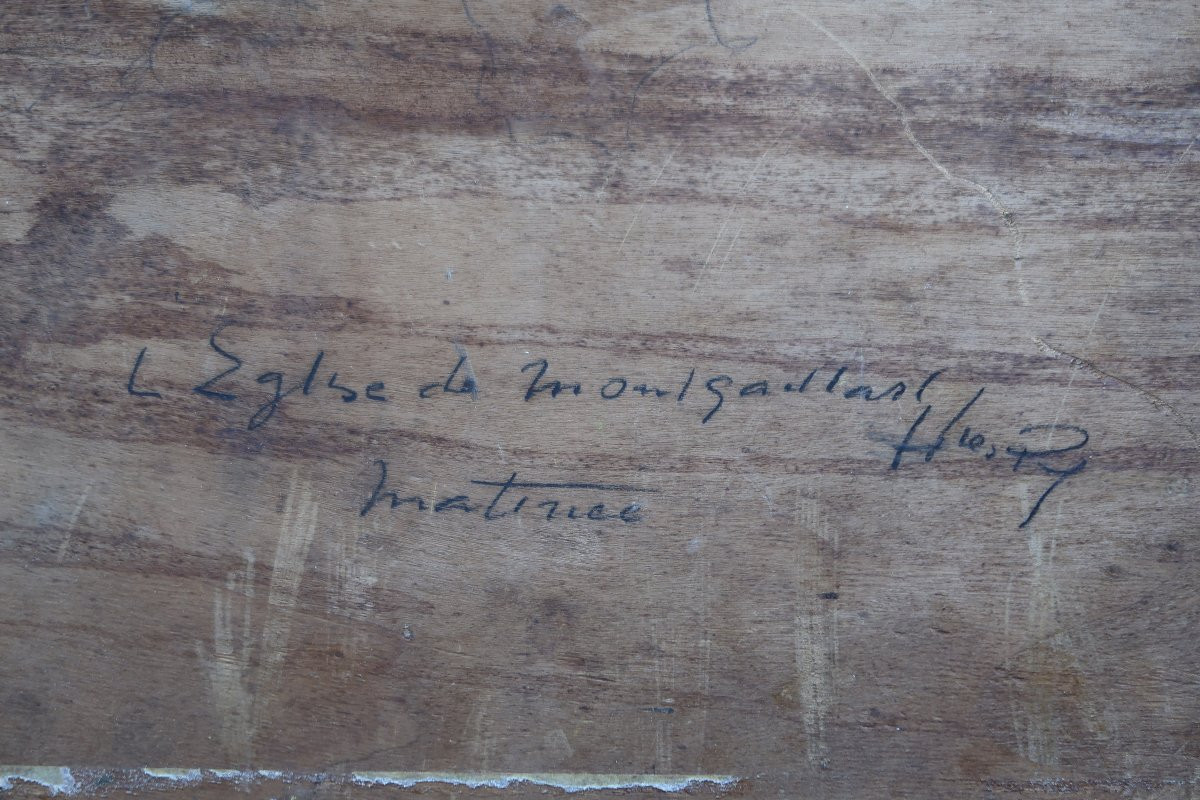 L Eglise de Montgaillard
Htes Py
Matinee